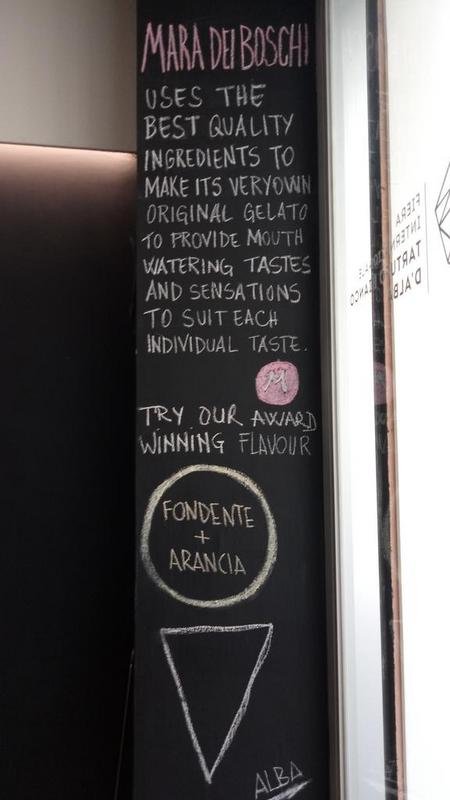 MARA DEI BOSCHI
USES THE
BEST QUALITY
INGREDIENTS TO
MAKE ITS VERY OWN
ORIGINAL GELATO
TO PROVIDE MOUTH
WATERING TASTES
AND SENSATIONS
TO SUIT EACH
INDIVIDUAL TASTE.
M
TRY OUR AWARD
WINNING FLAVOUR
FONDENTE
+
ARANCIA
ALBA
FIERA